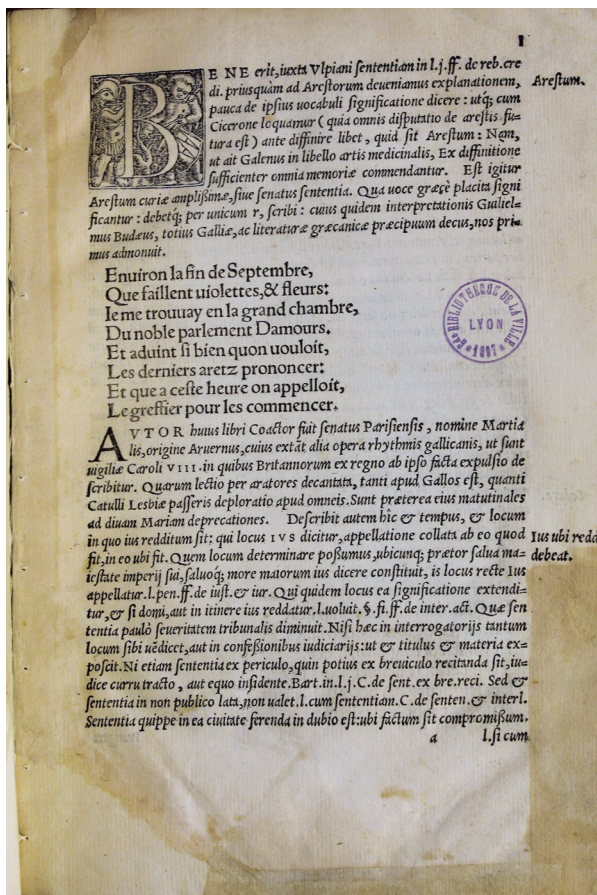 1
BENE erit, iuxta Vlpiani sententiam in l.j.ff. de reb.cre
di. priusquàm ad Arestorum deueniamus explanationem,
pauca de ipsius uocabuli significatione dicere : utq; cum
Cicerone loquamur ( quia omnis disputatio de arestis fu-
tura est ) ante diffinire libet, quid sit Arestum : Nam,
ut ait Galenus in libello artis medicinalis, Ex diffinitione
sufficienter omnia memoriæ commendantur. Est igitur
Arestum curiæ amplißimæ, siue senatus sententia. Qua uoce græcè placita signi
ficantur : debetq; per unicum r, scribi : cuius quidem interpretationis Guiliel-
mus Budæus, totius Galliæ, ac literaturæ græcanicæ præcipuum decus, nos pri-
mus admonuit.
Arestum.
Enuiron la fin de Septembre,
Que faillent uiolettes,& fleurs:
Ie me trouuay en la grand chambre,
Du noble parlement Damours.
Et aduint si bien quon uouloit,
Les derniers aretz prononcer:
Et que a ceste heure on appelloit,
Le greffier pour les commencer.
BIBLIOTHEQUE DE LA VILLE
LYON
1887
AVTOR huius libri Coactor fuit senatus Parisiensis , nomine Martia
lis, origine Aruernus, cuius extãt alia opera rhythmis gallicanis, ut sunt
uigiliæ Caroli VIII. in quibus Britannorum ex regno ab ipso facta expulsio de
scribitur. Quarum lectio per aratores decantata, tanti apud Gallos est, quanti
Catulli Lesbiæ passeris deploratio apud omneis. Sunt præterea eius matutinales
ad diuam Mariam deprecationes. Describit autem hîc & tempus, & locum
in quo ius redditum sit: qui locus IVS dicitur, appellatione collata ab eo quod
fit, in eo ubi fit. Quem locum determinare poßumus, ubicunq; prætor salua ma-
iestate imperij sui, saluoq; more maiorum ius dicere constituit, is locus recte Ius
appellatur. l. pen. ff. de iust. & iur. Qui quidem locus ea significatione extendi-
tur, & si domi, aut in itinere ius reddatur. l. uoluit. §. fi. ff. de inter. act. Quæ sen
tentia paulò seueritatem tribunalis diminuit. Nisi hæc in interrogatorijs tantum
locum sibi uẽdicet, aut in confeßionibus iudiciarijs: ut & titulus & materia ex-
poscit. Ni etiam sententia ex periculo, quin potius ex breuiculo recitanda sit, iu-
dice curru tracto , aut equo insidente. Bart. in. l. j. C. de sent. ex bre. reci. Sed &
sententia in non publico lata, non ualet. l. cum sententiam. C. de senten. & interl.
Sententia quippe in ea ciuitate ferenda in dubio est: ubi factum sit compromißum.
Ius ubi redd
debeat.
a l. si cum